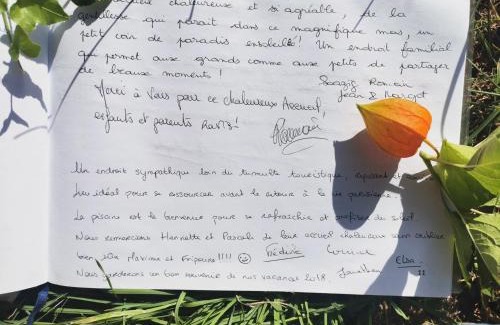 chaleureuse et si agréable, de la
qui paraît dans ce magnifique mas, un
petit coin de paradis ensoleillé! Un endroit familial
qui permet aux grands comme aux petits de partager
de beaux moments!
Romain
Jean &
Merci à Vous pour ce chaleureux Accueil,
enfants et parents RAVIS!
Un endroit sympathique loin du tumulte touristique, reposant et
lieu idéal pour se ressourcer avant le retour à la vie parisienne.
La piscine est la bienvenue pour se rafraîchir et profiter du soleil.
Nous remercions Henriette et Pascale de leur accueil chaleureux sans oublier
bien sûr Maxime et !!!!
Elsa
Nous garderons un bon souvenir de nos vacances 2018. Jonathan